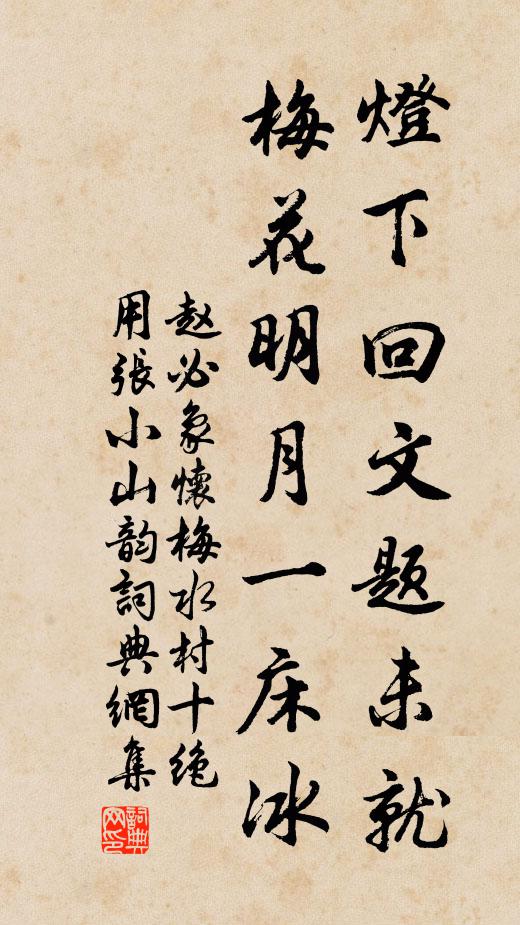 燈下回文题未就
梅花明月一床冰
赵必象懷梅水村十绝
用張小山韵詞典網集
詞典网印